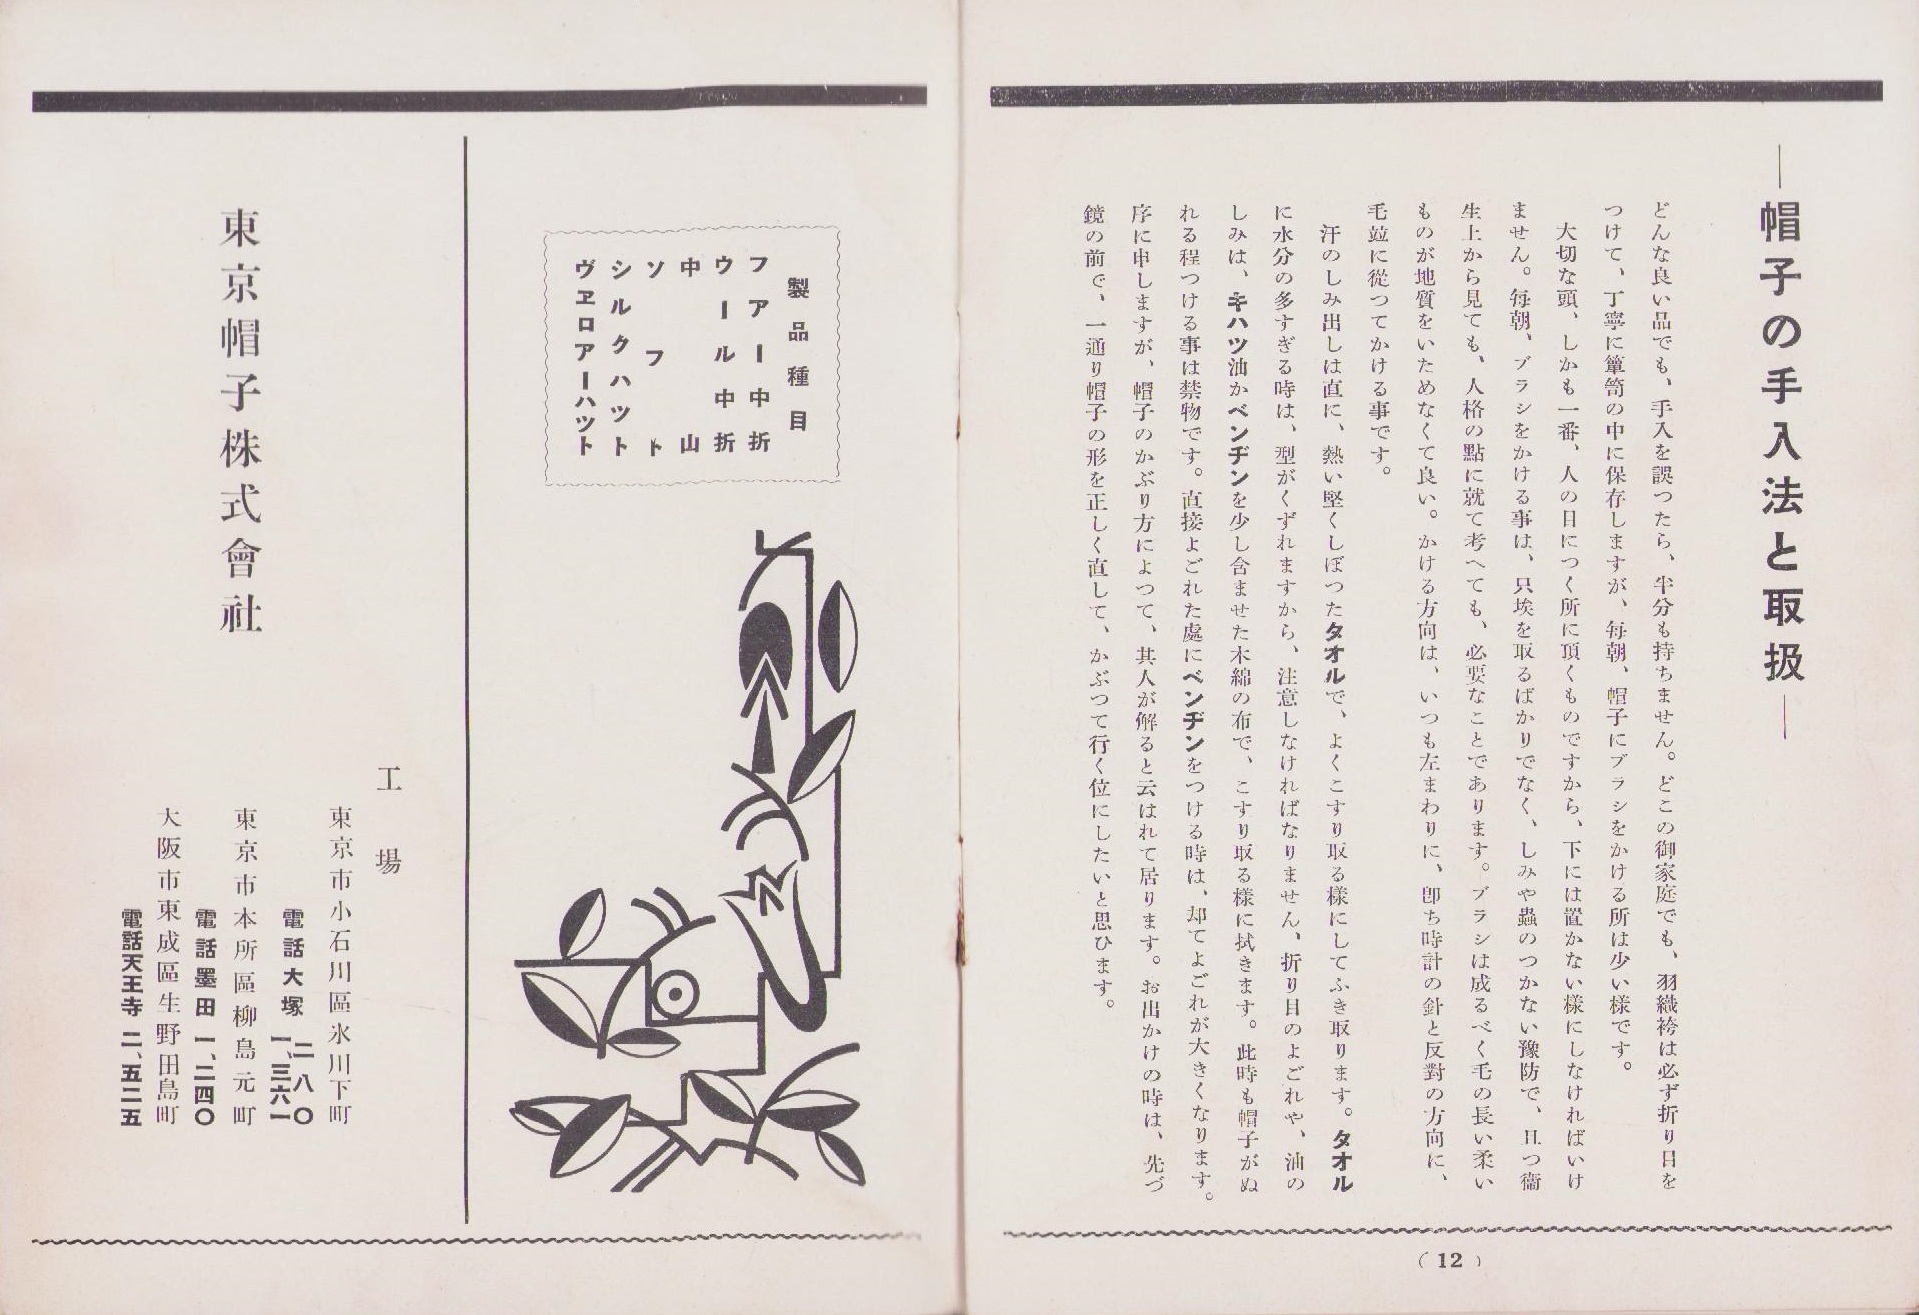 ―帽子の手入法と取扱―
どんな良い品でも、手入を誤つたら、半分も持ちません。どこの御家庭でも、羽織袴は必ず折り目を
つけて、丁寧に簞笥の中に保存しますが、毎朝、帽子にブラシをかける所は少い様です。
大切な頭、しかも一番、人の目につく所に頂くものですから、下には置かない樣にしなければいけ
ません。毎朝、ブラシをかける事は、只埃を取るばかりでなく、しみや蟲のつかない豫防で、且つ衞
生上から見ても、人格の點に就て考へても、必要なことであります。ブラシは成るべく毛の長い柔い
ものが地質をいためなくて良い。かける方向は、いつも左まわりに、卽ち時計の針と反對の方向に、
毛竝に從つてかける事です。
汗のしみ出しは直に、熱い堅くしぼつたタオルで、よくこすり取る樣にしてふき取ります。タオル
に水分の多すぎる時は、型がくずれますから、注意しなければなりません、折り目のよごれや、油の
しみは、キハツ油かベンヂンを少し含ませた木綿の布で、こすり取る樣に拭きます。此時も帽子がぬ
れる程つける事は禁物です。直接よごれた處にベンヂンをつける時は、却てよごれが大きくなります。
序に申しますが、帽子のかぶり方によつて、其人が解ると云はれて居ります。お出かけの時は、先づ
鏡の前で、一通り帽子の形を正しく直して、かぶつて行く位にしたいと思ひます。
(12)
製品種目
フアー中折
ウール中折
中山
ソフト
シルクハツト
ヴエロアーハツト
工場
東京市小石川區氷川下町
電話大塚 二八〇
一、三六一
東京市本所區柳島元町
電話墨田 一、二四〇
大阪市東成區生野田島町
電話天王寺 二、五二五
東京帽子株式會社